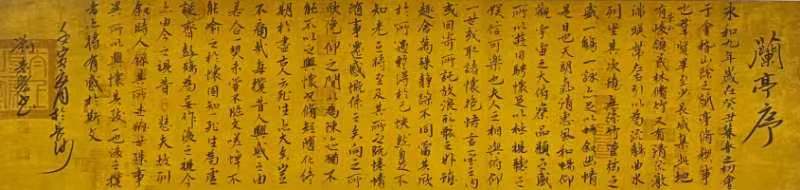 蘭亭序
永和九年歲在癸丑暮春之初會
于會稽山陰之蘭亭脩禊事
也群賢畢至少長咸集此地
有峻領茂林脩竹又有清流激
湍暎帶左右引以為流觴曲水
列坐其次雖無絲竹管弦之
盛一觴一詠亦足以暢敘幽情
是日也天朗氣清惠風和暢仰
觀宇宙之大俯察品類之盛
所以遊目騁懷足以極視聽之
娛信可樂也夫人之相與俯仰
一世或取諸懷抱悟言一室之內
或因寄所託放浪形骸之外雖
趣舍萬殊靜躁不同當其欣
於所遇暫得於己快然自足不
知老之將至及其所之既倦情
隨事遷感慨係之矣向之所
欣俛仰之間以為陳跡猶不
能不以之興懷況脩短隨化終
期於盡古人云死生亦大矣豈
不痛哉每攬昔人興感之由
若合一契未嘗不臨文嗟悼不
能喻之於懷固知一死生為虛
誕齊彭殤為妄作後之視今
亦由今之視昔悲夫故列
敘時人錄其所述雖世殊事
異所以興懷其致一也後之攬
者亦將有感於斯文